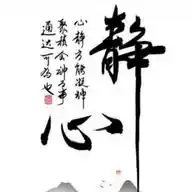 静心
心静方能凝神
聚精会神于事
通达可为也